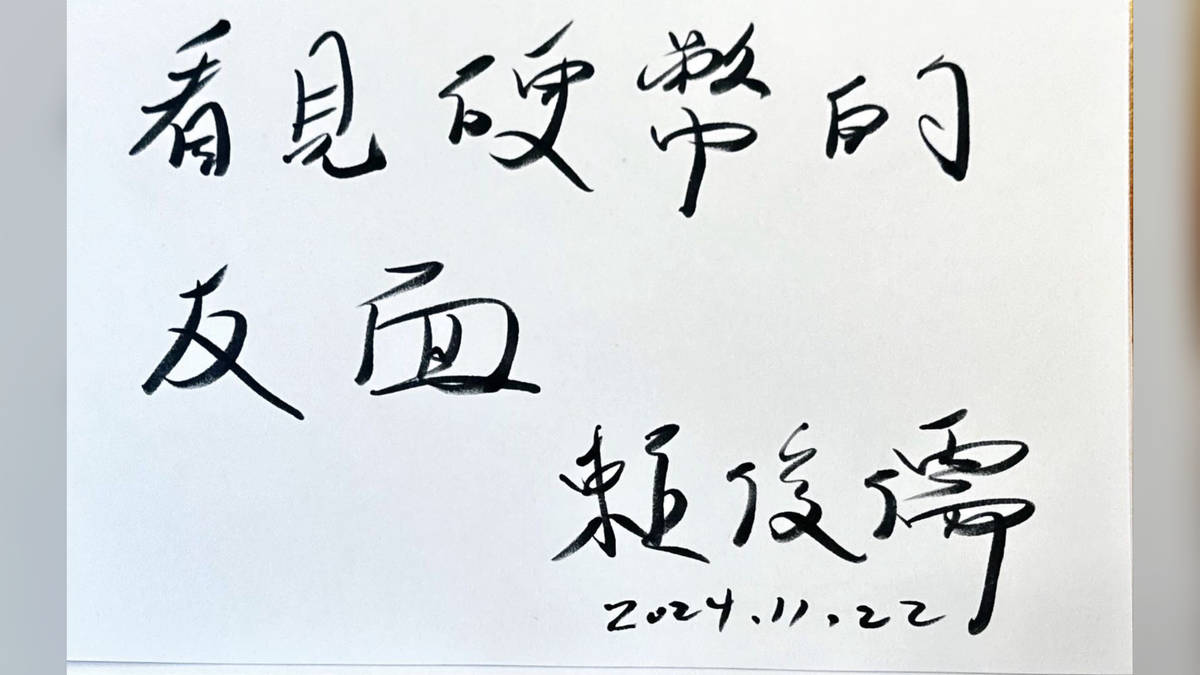 看見硬幣的
反面
賴俊儒
2024.11.22